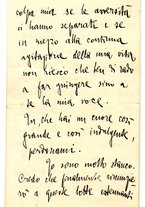 colpa mia se le avversità
ci hanno separate e se
in mezzo alla continua
agitazione della mia vita
non riesco che ben di rado
a far giungere sino a
te la mia voce.
Tu, che hai un cuore così
grande e così indulgente
perdonami.
Io sono molto stanco.
Credo che finalmente
però a queste lotte estenuanti